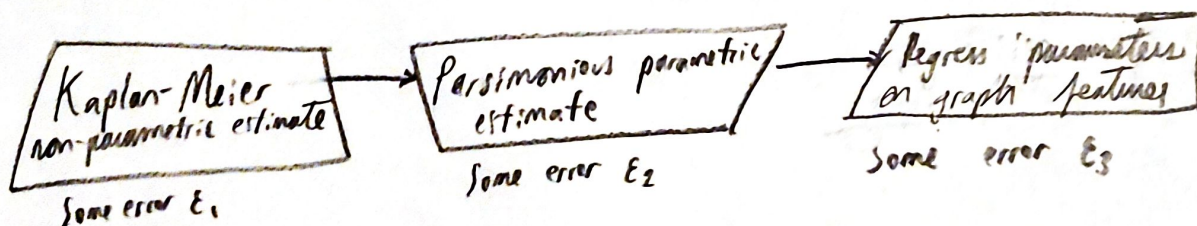 Kaplan-Meier
non-parametric estimate
Some error ε₁
Parsimonious parametric
estimate
Some error ε₂
Regress parameters
on graph features
Some error ε₃